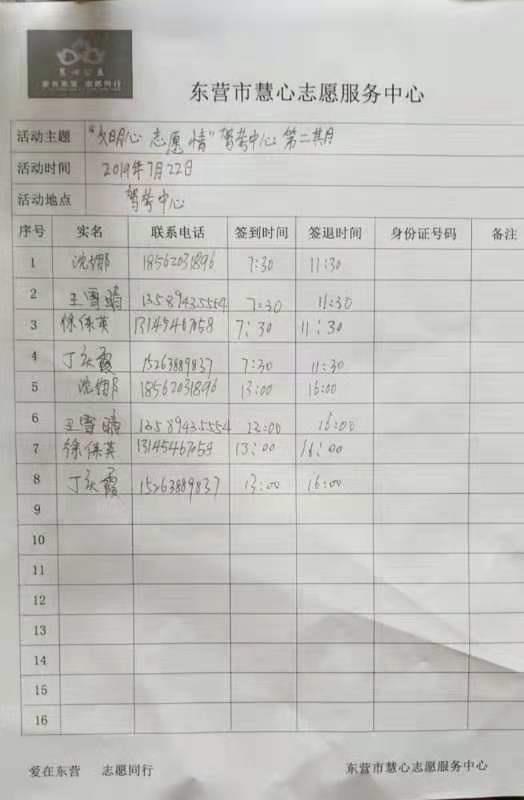 慧心公益
爱在东营 志愿同行
东营市慧心志愿服务中心
活动主题 “文明心 志愿情”驾考中心 第二期
活动时间 2019年7月22日
活动地点 驾考中心
序号 实名 联系电话 签到时间 签退时间 身份证号码 备注
1 沈娜 18562031896 7:30 11:30
2 王雪晴 13589435554 7:30 11:30
3 徐保英 7:30 11:30
4 丁庆霞 15263889837 7:30 11:30
5 沈娜 18562031896 13:00 16:00
6 王雪晴 13589435554 13:00 16:00
7 徐保英 13:00 16:00
8 丁庆霞 15263889837 13:00 16:00
9
10
11
12
13
14
15
16
爱在东营 志愿同行 东营市慧心志愿服务中心